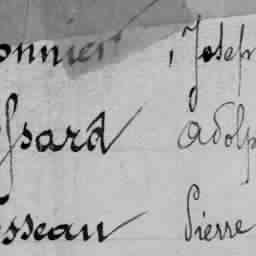 onnier, Josep
ssard Adolp
sseau Pierre